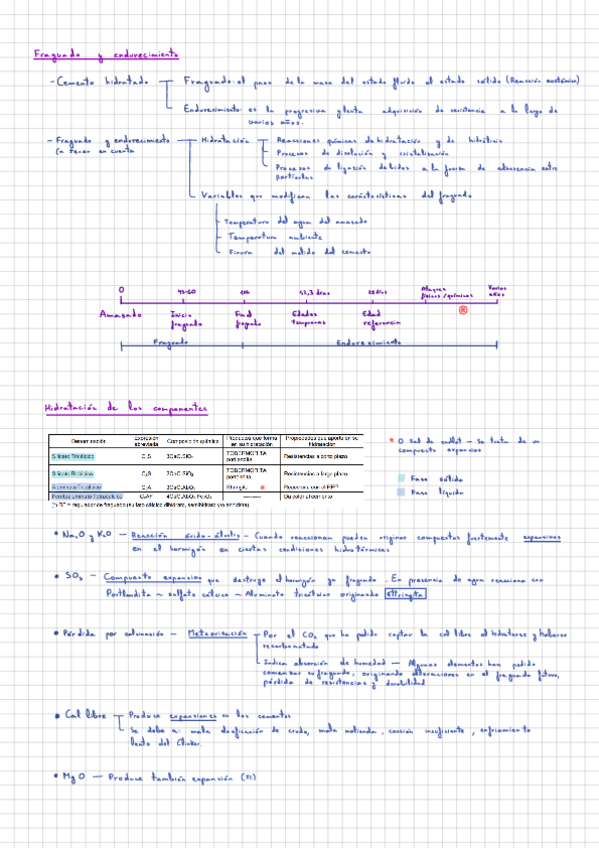 Fraguado y endurecimiento
- Cemento hidratado
Fraguado: el paso de la masa del estado fluido al estado sólido (Reacción exotérmica)
Endurecimiento: es la progresiva y lenta adquisición de resistencia a lo largo de
varios años.
- Fraguado y endurecimiento
(a tener en cuenta
Hidratación
Reacciones químicas de hidratación y de hidrólisis
Procesos de disolución y cristalización
Procesos de ligazón debidos a la fuerza de adherencia entre
partículas
Variables que modifican las características del fraguado
- Temperatura del agua del amasado
- Temperatura ambiente
- Finura del molido del cemento
0
45-60
28 días
Varios
años
Amasado
Inicio
fraguado
Final
fraguado
Edades
tempranas
Edad
referencia
Fraguado
Endurecimiento
Hidratación de los componentes
Denominación
Expresión
abreviada
Composición química
Productos que forma
en su hidratación
Propiedades que aporta en su
hidratación
Silicato Tricálcico
C₃S
TOBERMORITA
portlandita
Resistencias a corto plazo
Silicato Bicálcico
C₂S
TOBERMORITA
portlandita
Resistencias a largo plazo
Aluminato Tricálcico
C₃A
Etringita
Da color al cemento
* O sal de candlot - se trata de un
compuesto expansivo
Fase sólida
Fase líquida
• Na₂O y K₂O — Reacción árido-álcalis - Cuando reaccionan pueden originar compuestos fuertemente expansivos
en el hormigón en ciertas condiciones hidrotérmicas
• SO₃ - Compuesto expansivo que destruye el hormigón ya fraguado. En presencia de agua reacciona con
Portlandita ~ sulfato cálcico ~ Aluminato tricálcico originando ettringita
• Pérdida por calcinación - Meteorización
Por el CO₂ que ha podido captar la cal libre al hidratarse y haberse
recarbonatado
Indica absorción de humedad — Algunos elementos han podido
comenzar su fraguado, originando alteraciones en el fraguado futuro,
pérdida de resistencias y durabilidad
• Cal libre
Produce expansiones en los cementos
Se debe a: mala dosificación de crudo, mala molienda, cocción insuficiente, enfriamiento
lento del Clinker.
• MgO — Produce también expansión